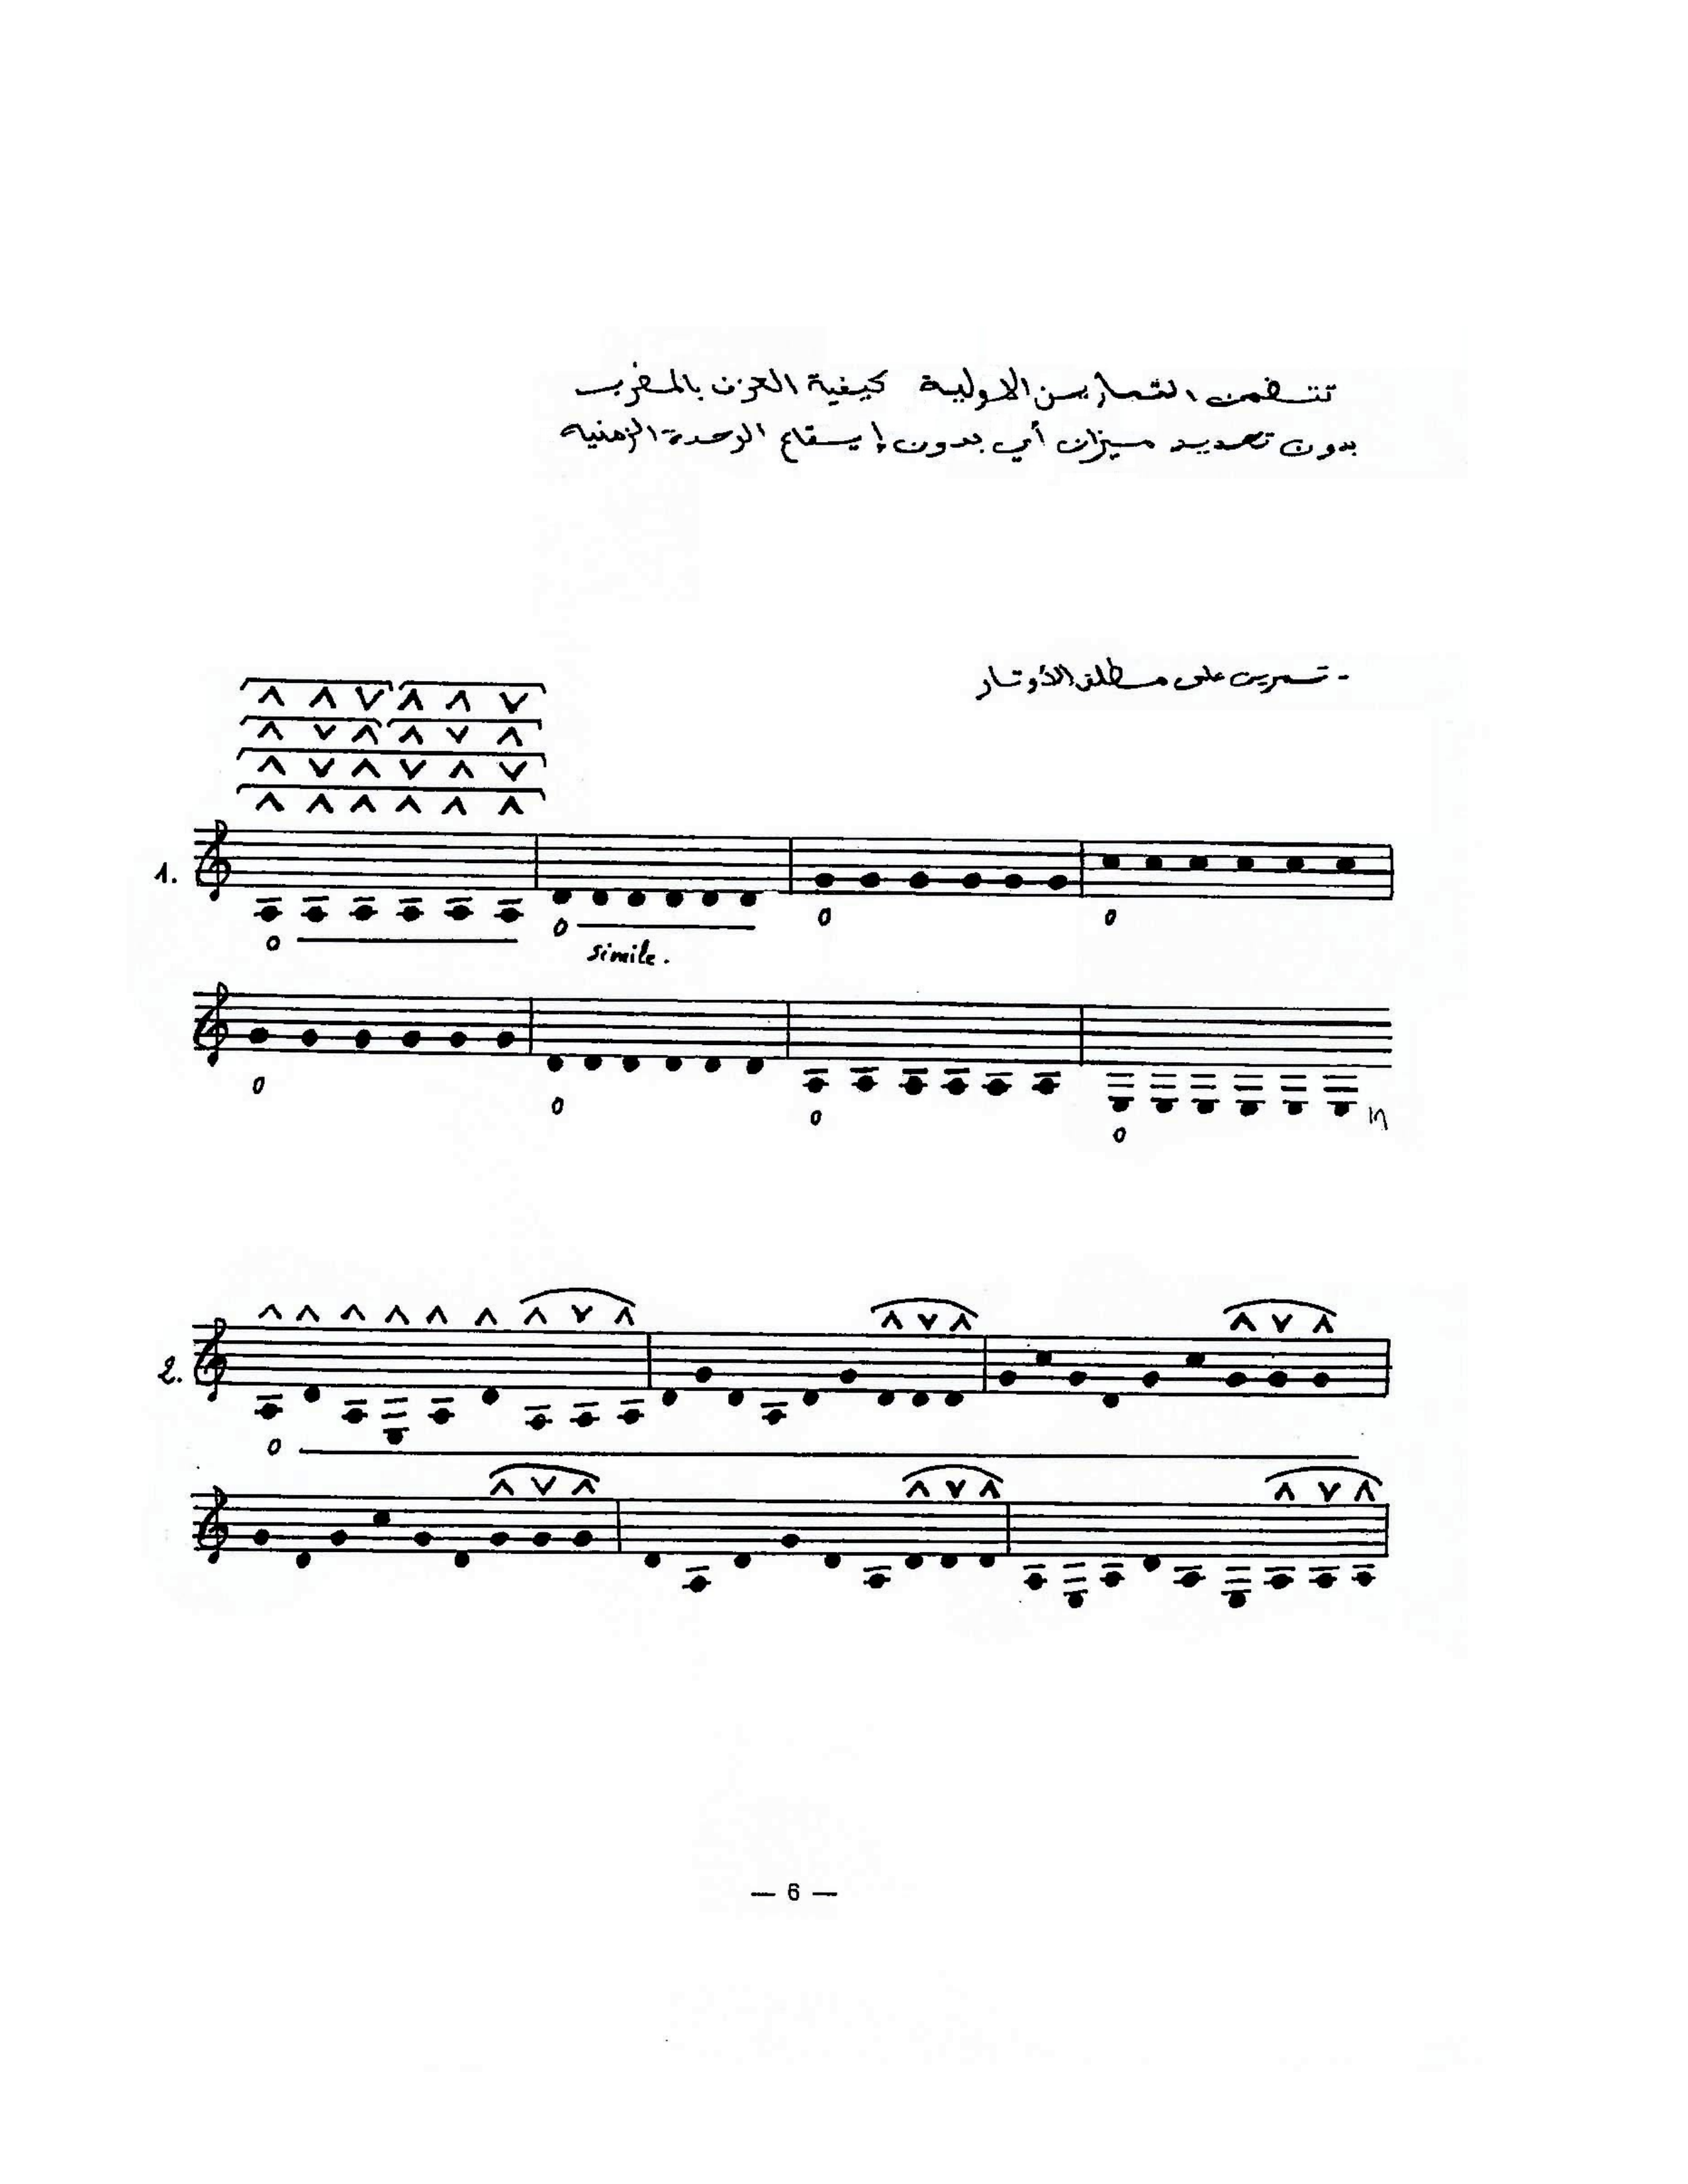 تتضمن التمارين الاولية كيفية العزف بالمضرب
بدون تحديد ميزان أي بدون إيقاع الوحدة الزمنية
- تمرين على مطلق الأوتار
1.
simile.
2.
— 6 —